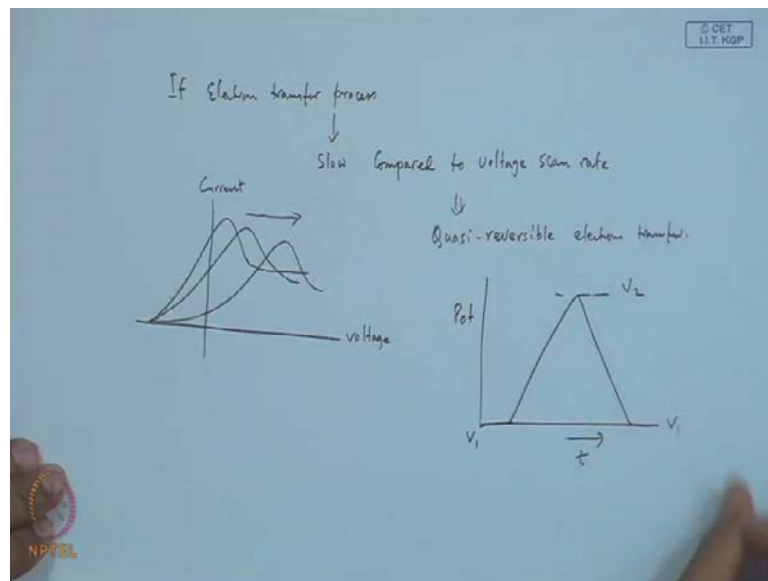 © CET
I.I.T. KGP
If Electron transfer process
Slow Compared to voltage scan rate
Quasi-reversible electron transfer.
Current
voltage
Pot
V2
V1
V1
t
NPTEL